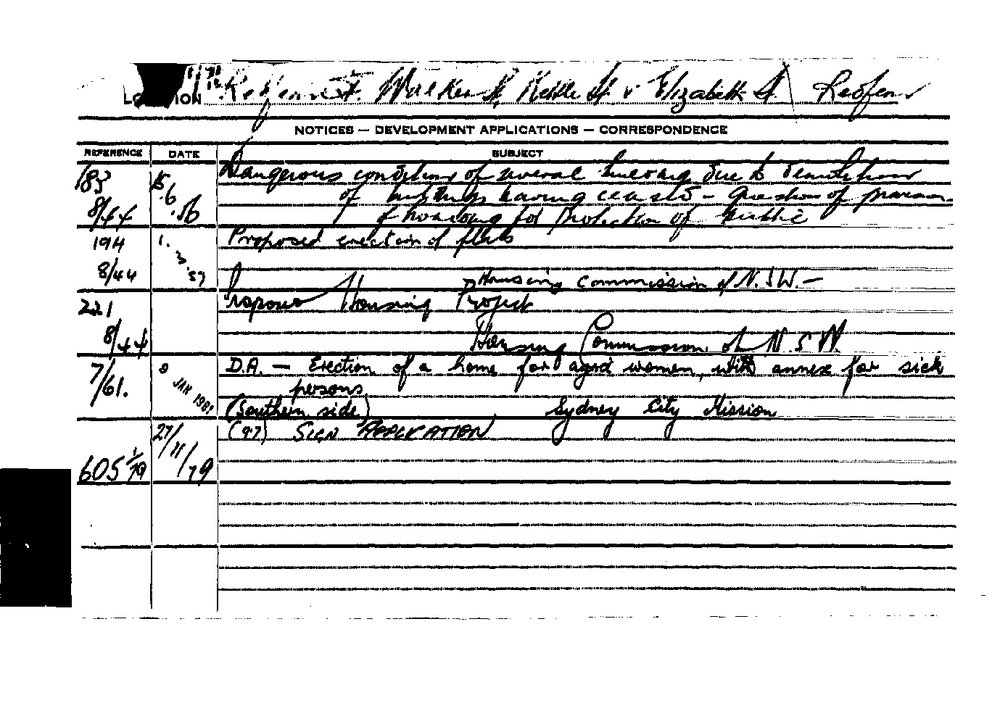 LOCATION Redfern St. Walker St, Kettle St & Elizabeth St Redfern
NOTICES — DEVELOPMENT APPLICATIONS — CORRESPONDENCE
REFERENCE DATE SUBJECT
183 15. Dangerous condition of several due to demolition
8/44 6 of buildings having ceased - Question of
.56 of hoarding for Protection of Public
194 1. Proposed erection of flats
8/44 3 .57 Housing Commission of N.S.W. —
221 Proposed Housing Project
8/44 Housing Commission of N.S.W.
7/61. 9 JAN 1961 D.A. — Erection of a home for aged women, with annex for sick
persons
(Southern side) Sydney City Mission
27/11/79 (97) SIGN APPLICATION
605 1/79